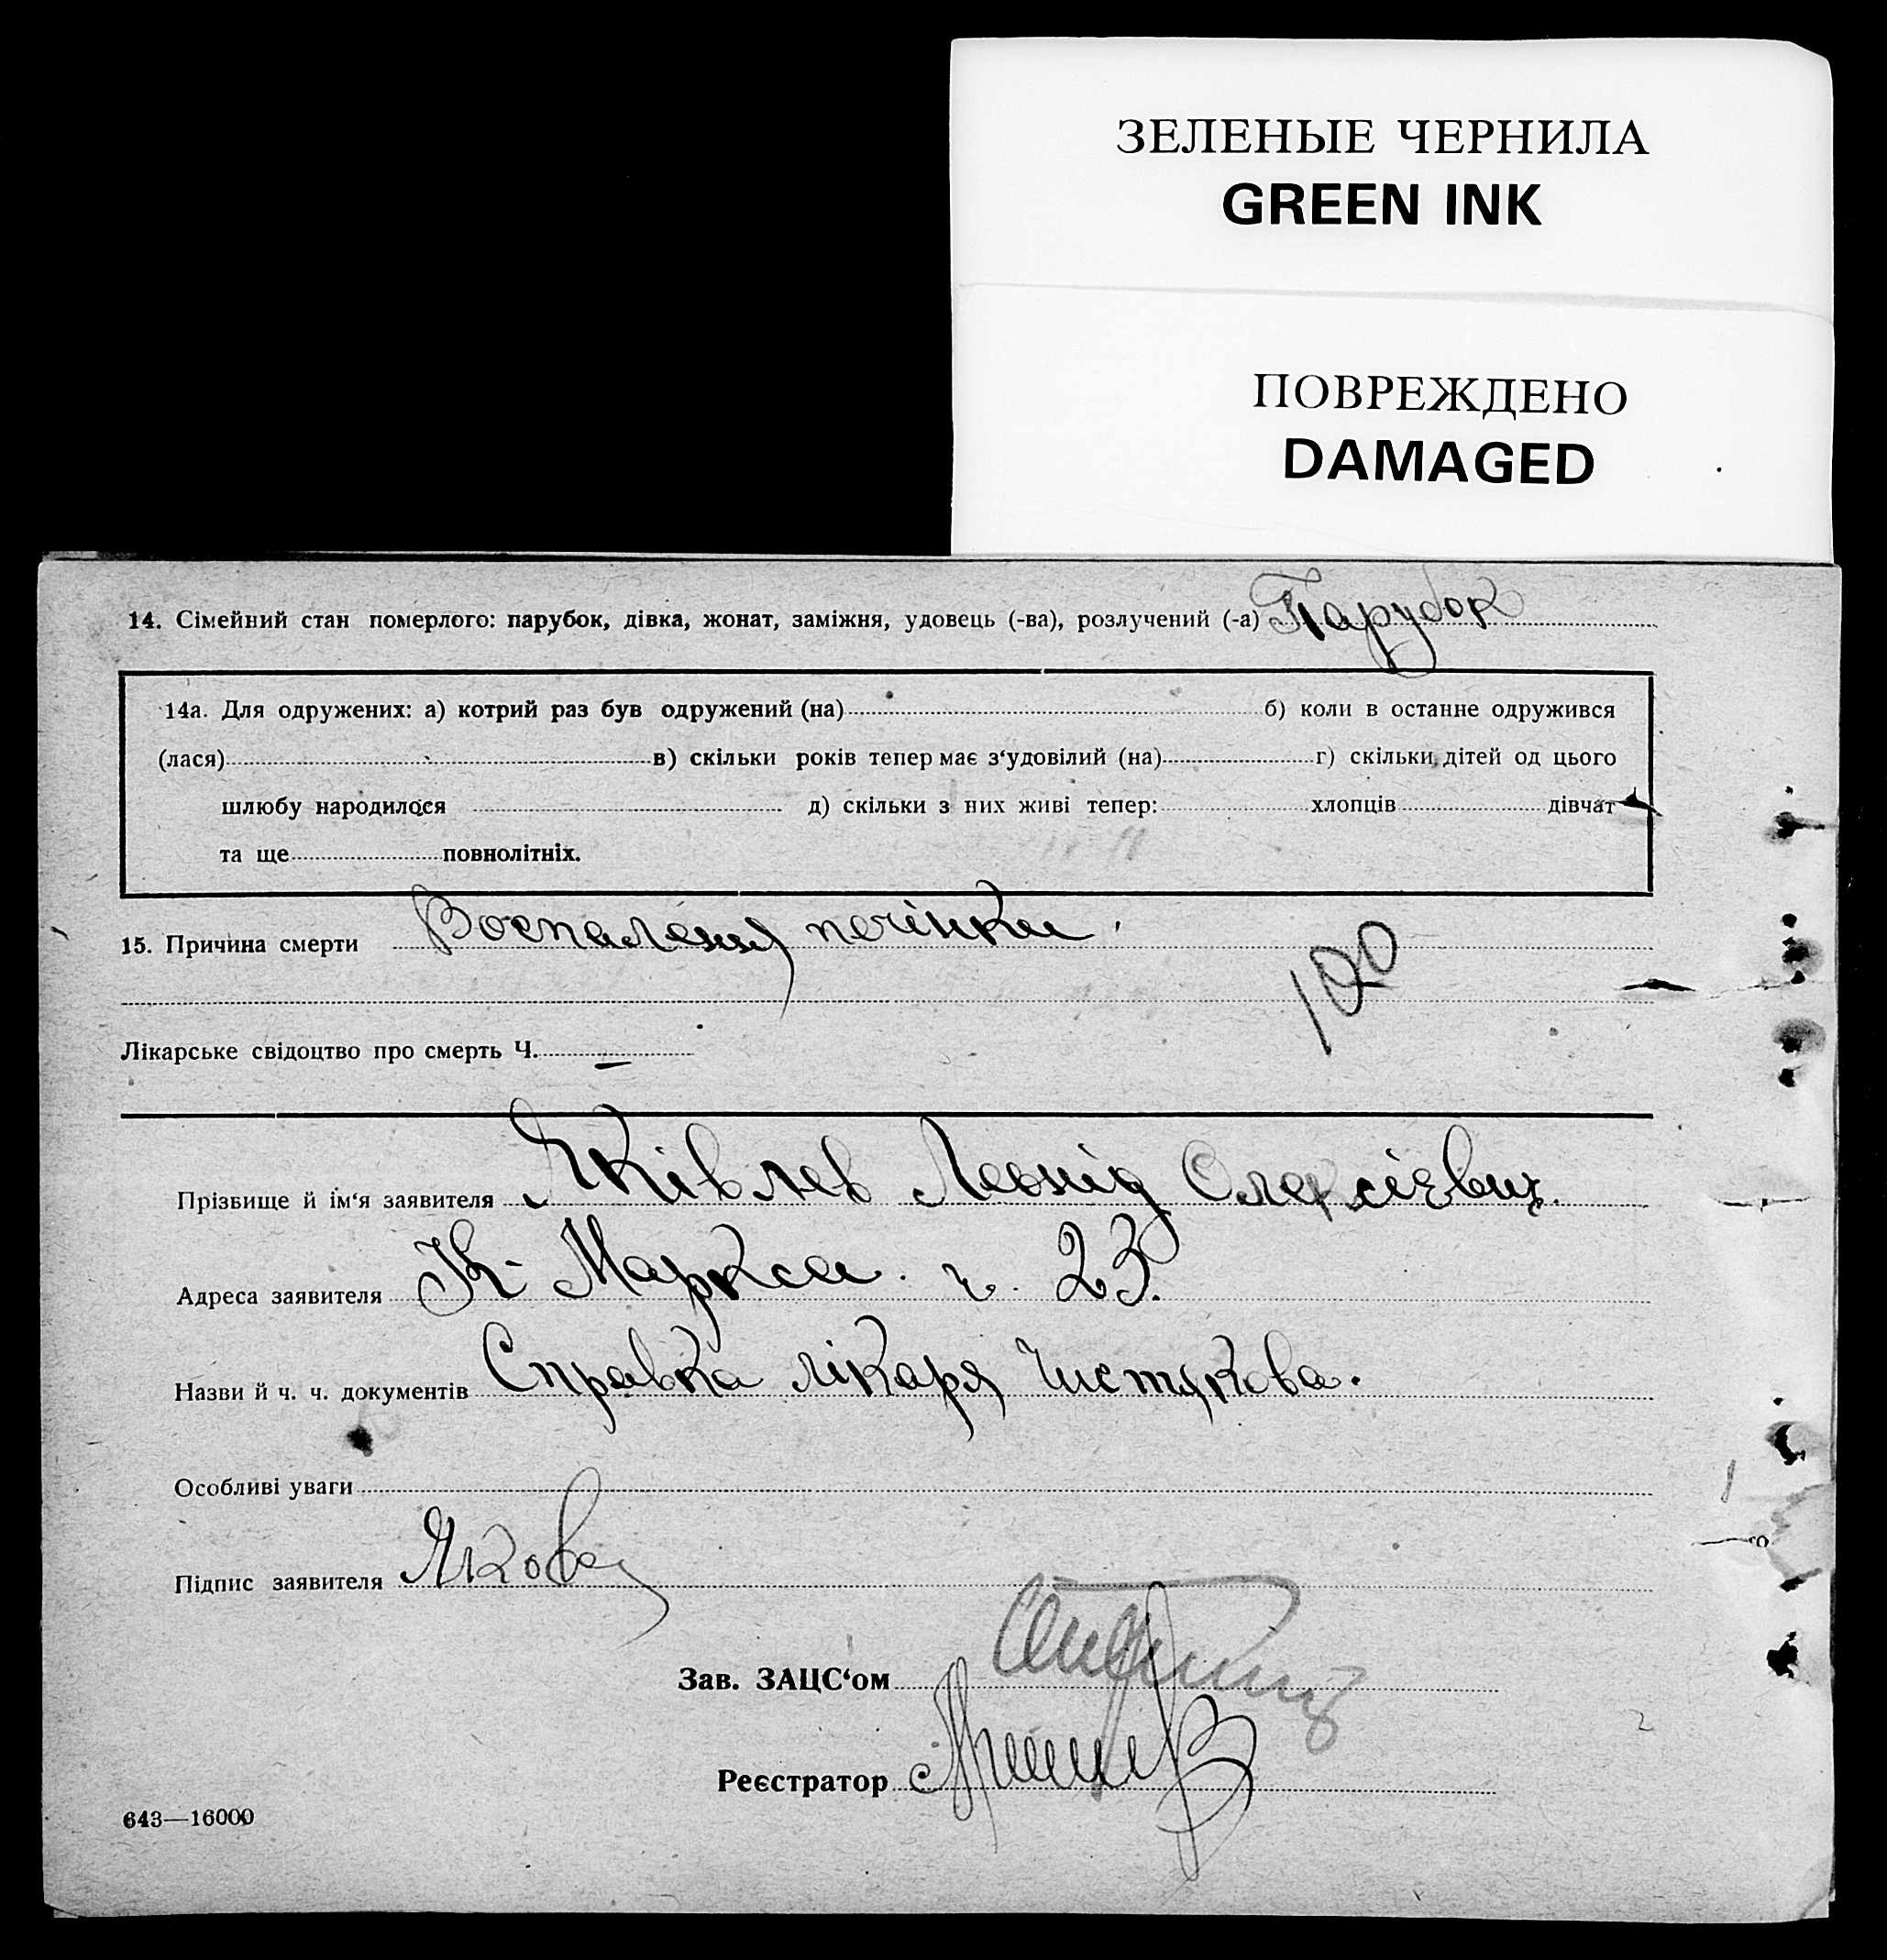 ЗЕЛЕНЫЕ ЧЕРНИЛА
GREEN INK
ПОВРЕЖДЕНО
DAMAGED
14. Сімейний стан померлого: парубок, дівка, жонат, заміжня, удовець (-ва), розлучений (-а) Парубок
14а. Для одружених: а) котрий раз був одружений (на) б) коли в останне одружився
(лася) в) скільки років тепер має з‘удовілий (на) г) скільки дітей од цього
шлюбу народилося д) скільки з них живі тепер: хлопців дівчат
та ще повнолітніх.
15. Причина смерти Воспаления печінки
100
Лікарське свідоцтво про смерть Ч. —
Прізбище й ім‘я заявителя Яківлев Леонід Олексієвич.
Адреса заявителя К. Маркса. ч. 23.
Назви й ч. ч. документів Справка лікаря Чистякова.
Особливі уваги
Підпис заявителя
Зав. ЗАЦС‘ом
Реєстратор
643—16000